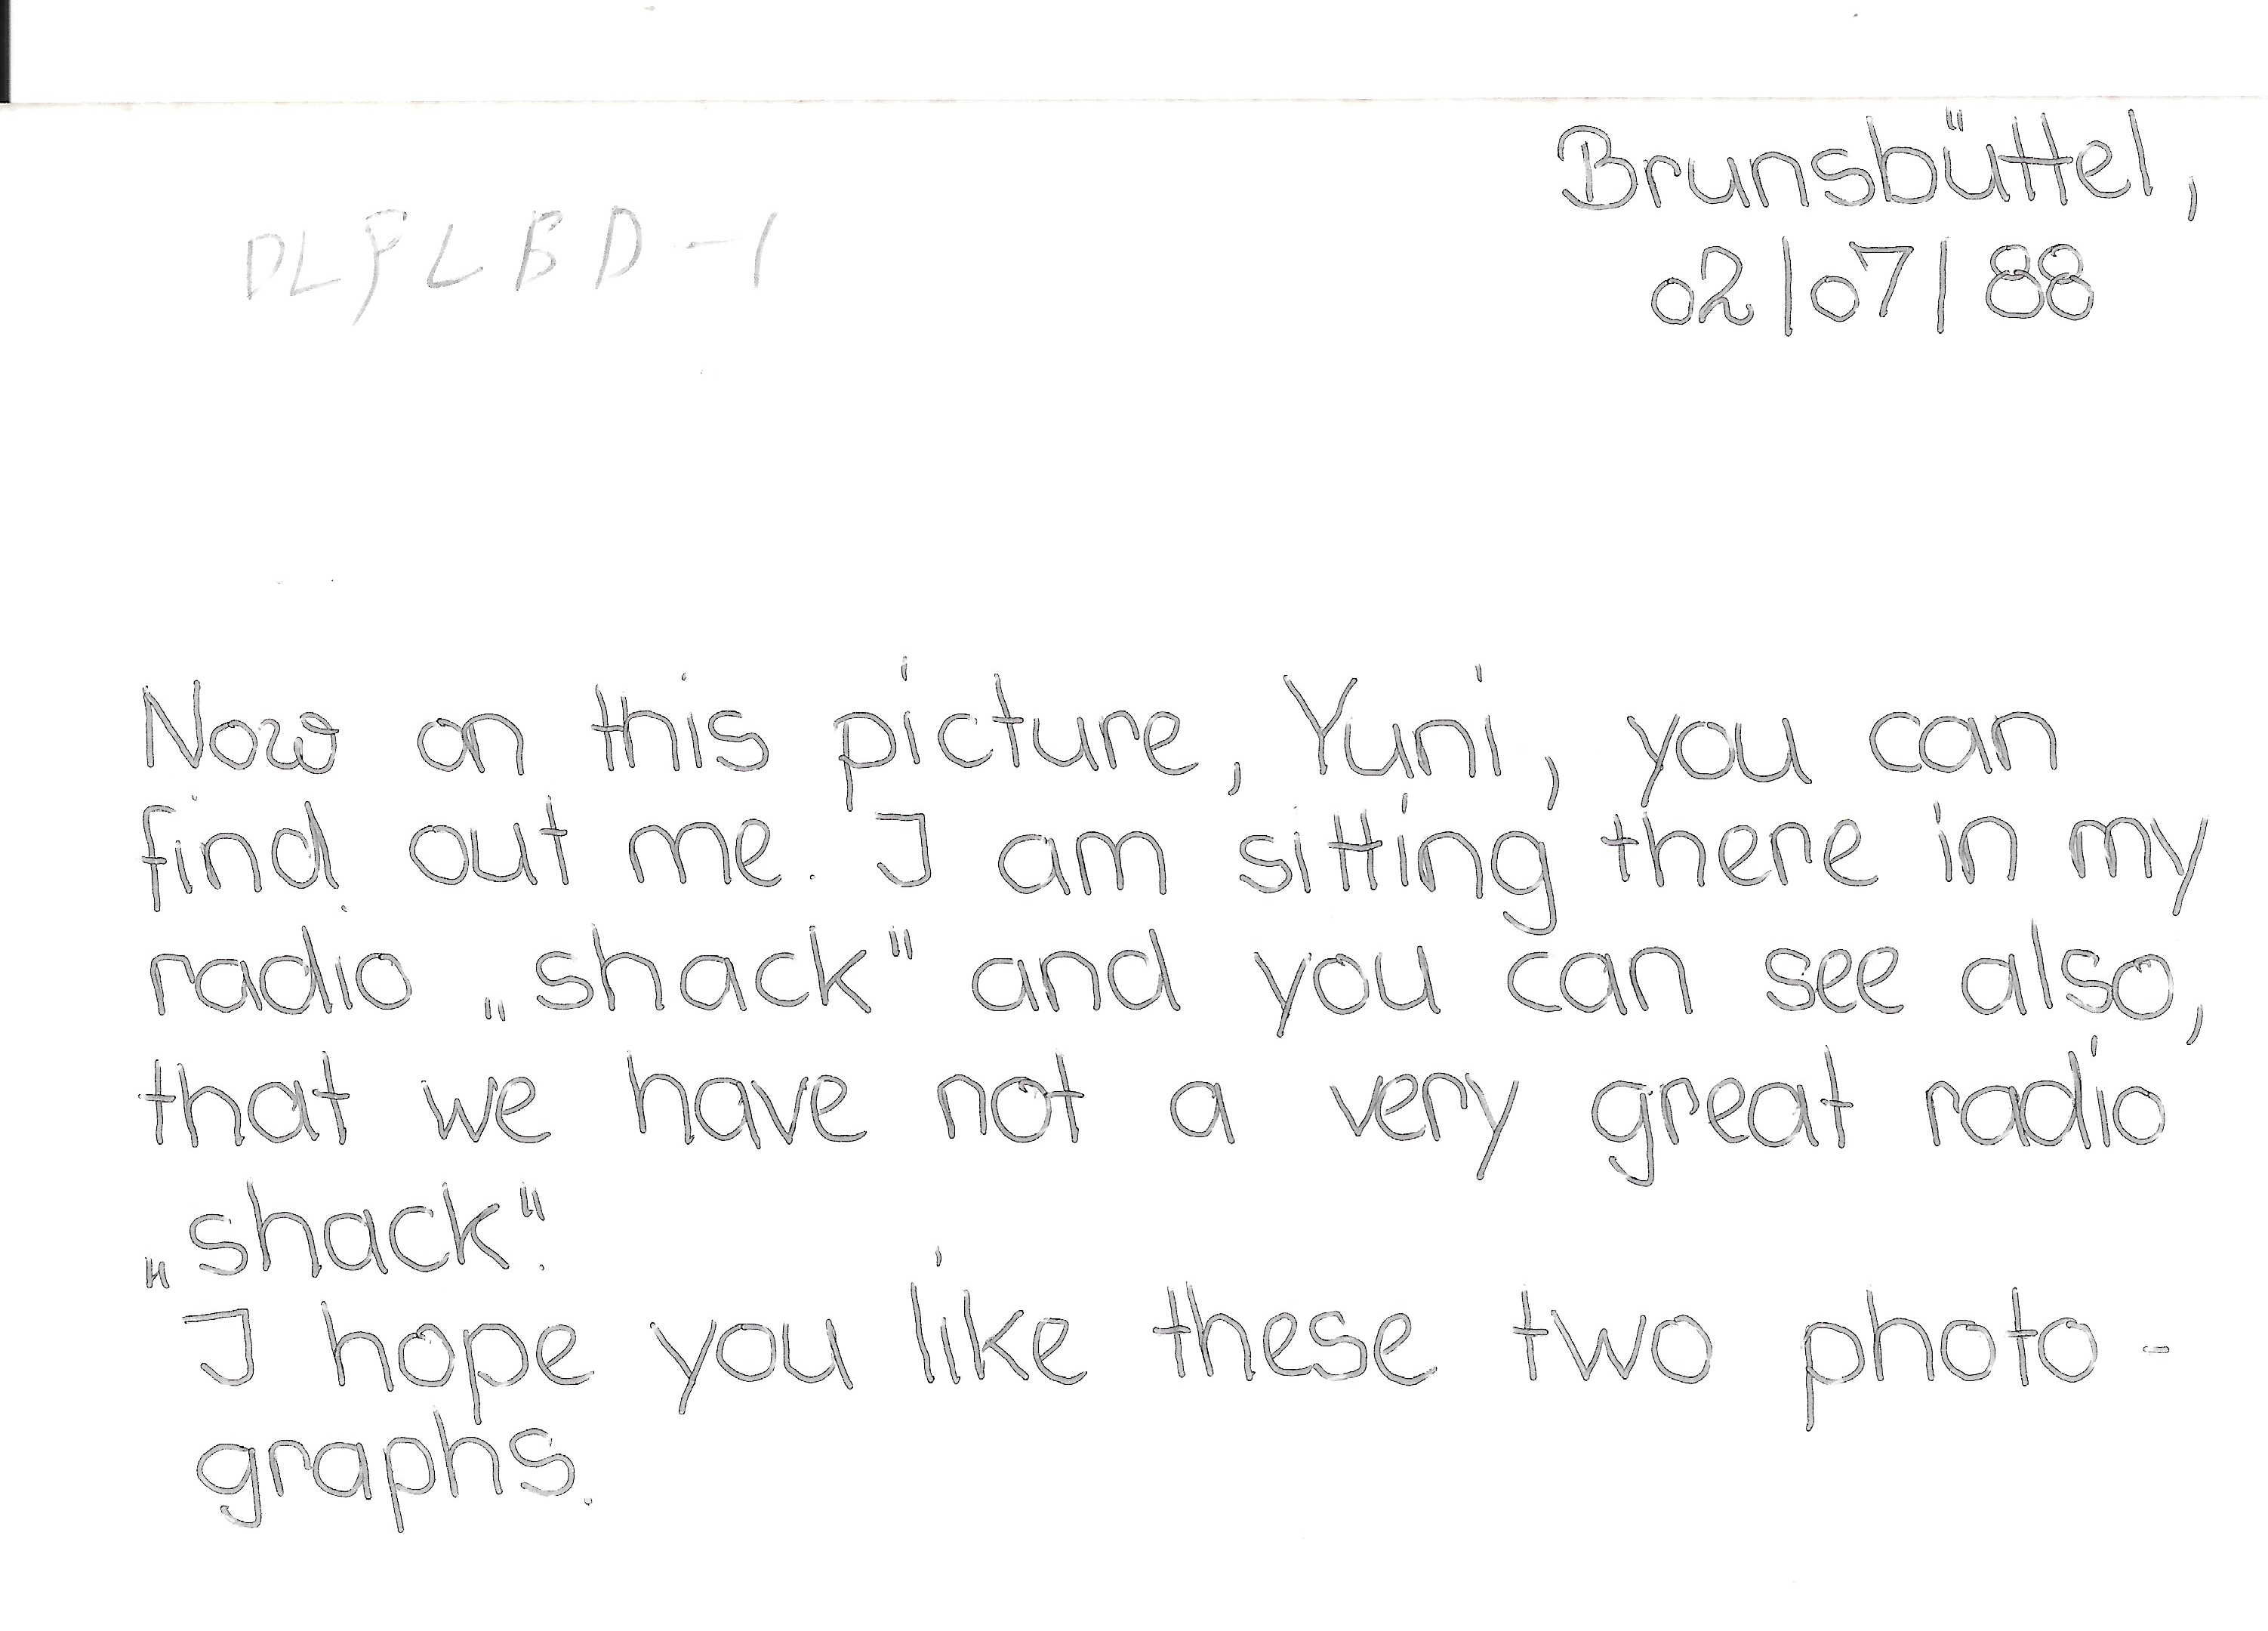 Brunsbüttel,
02/07/88
Now on this picture, Yuni, you can
find out me. I am sitting there in my
radio „shack" and you can see also,
that we have not a very great radio
„shack".
I hope you like these two photo-
graphs.